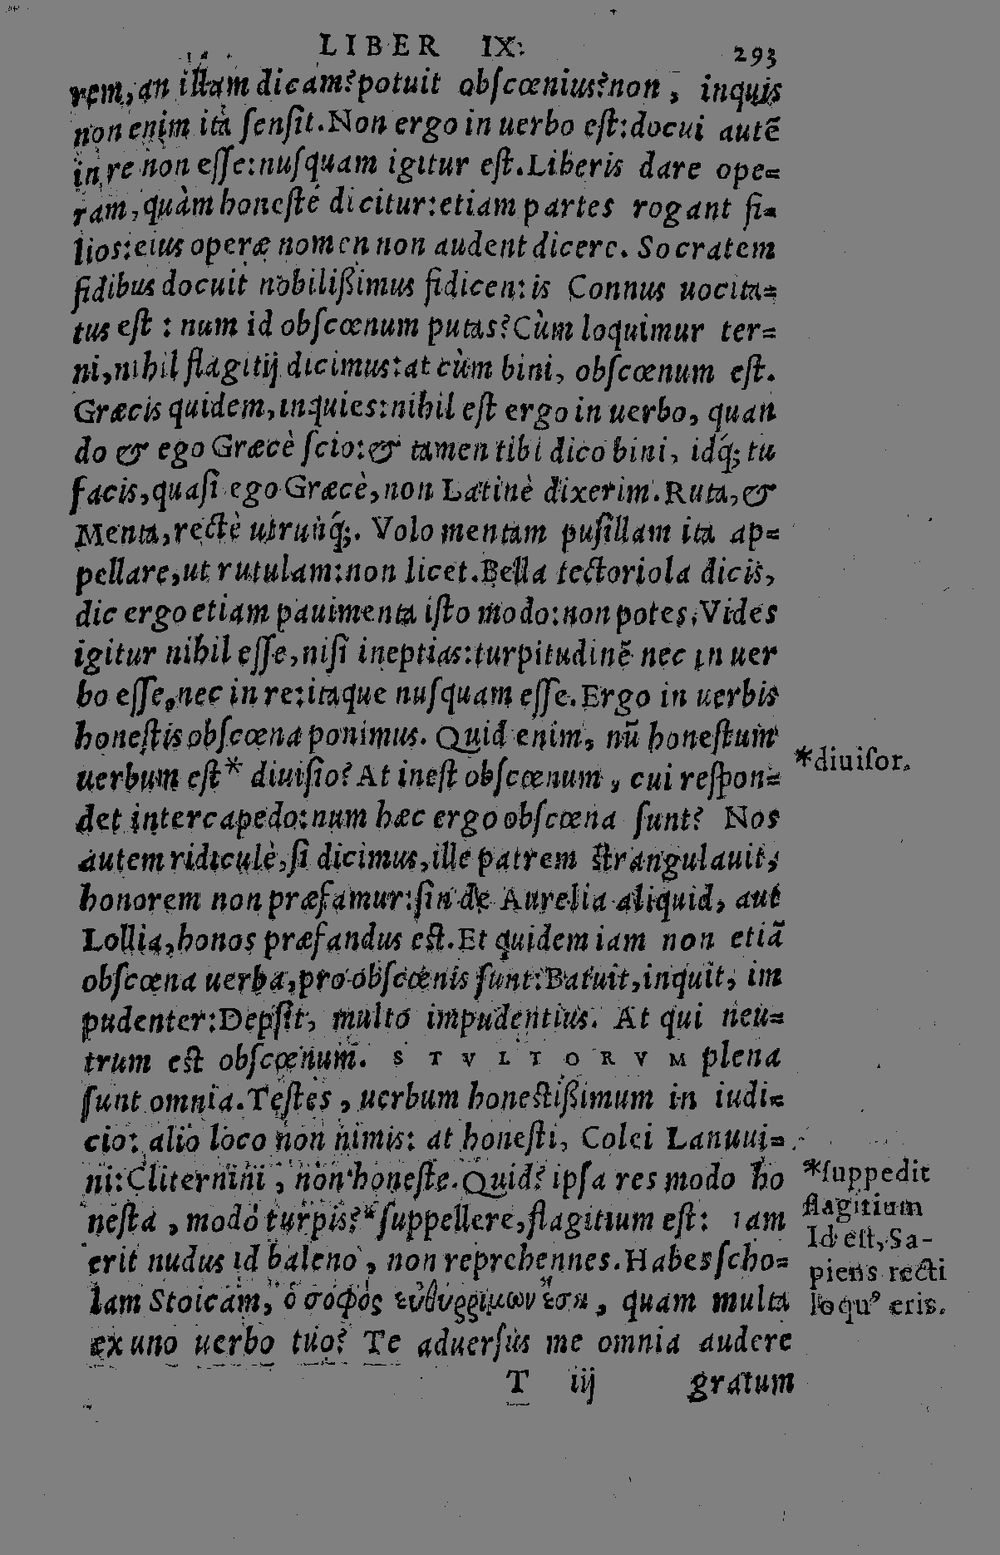 LIBER IX. 293
rem, an illam dicam? potuit obſcœnius? non, inquis
non enim ita ſenſit. Non ergo in uerbo eſt: docui autē
in re non eſſe: nuſquam igitur eſt. Liberis dare ope=
ram, quàm honeſte dicitur: etiam partes rogant fi=
lios: eius operæ nomen non audent dicere. Socratem
fidibus docuit nobilißimus fidicen: is Connus uocita=
tus eſt : num id obſcœnum putas? Cùm loquimur ter=
ni, nihil flagitij dicimus: at cùm bini, obſcœnum eſt.
Græcis quidem, inquies: nihil eſt ergo in uerbo, quan
do & ego Græcè ſcio: & tamen tibi dico bini, idq́; tu
facis, quaſi ego Græcè, non Latinè dixerim. Ruta, &
Menta, rectè utrunq́;. Volo mentam puſillam ita ap=
pellare, ut rutulam: non licet. Bella tectoriola dicis,
dic ergo etiam pauimenta iſto modo: non potes. Vides
igitur nihil eſſe, niſi ineptias: turpitudinē nec in uer
bo eſſe, nec in re: itaque nuſquam eſſe. Ergo in uerbis
honeſtis obſcœna ponimus. Quid enim, nū honeſtum
uerbum eſt* diuiſio? At ineſt obſcœnum, cui reſpon=
*diuiſor.
det intercapedo: num hæc ergo obſcœna ſunt? Nos
autem ridiculè, ſi dicimus, ille patrem ſtrangulauit,
honorem non præfamur: ſin de Aurelia aliquid, aut
Lollia, honos præfandus eſt. Et quidem iam non etiā
obſcœna uerba, pro obſcœnis ſunt: Batuit, inquit, im
pudenter: Depſit, multo impudentius. At qui neu=
trum eſt obſcœnum. STVLTORVM plena
ſunt omnia. Teſtes, uerbum honeſtißimum in iudi=
cio: alio loco non nimis: at honeſti, Colei Lanuui=
ni: Cliternini, non honeſte. Quid? ipſa res modo ho
neſta, modo turpis? *ſuppellere, flagitium eſt: iam
erit nudus id baleno, non reprehennes. Habes ſcho=
lam Stoicam, ὁ σοφὸς εὐθυῤῥημων ἔσῃ, quam multa
ex uno uerbo tuo? Te aduerſus me omnia audere
*ſuppedit
flagitium
Id eſt, Sa-
piens recti
loquꝰ eris.
T iij gratum